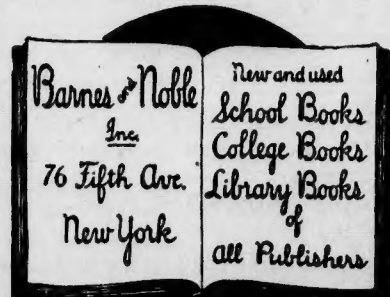 Barnes and Noble
Inc.
76 Fifth Ave.
New York
New and used
School Books
College Books
Library Books
of
all Publishers